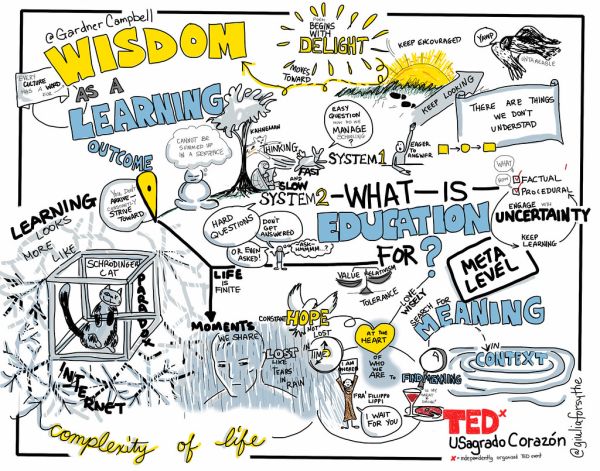 @Gardner Campbell
WISDOM
AS A
LEARNING
OUTCOME
EVERY
CULTURE
HAS A WORD
FOR
POEM
BEGINS
WITH
DELIGHT
MOVES
TOWARD
KEEP ENCOURAGED
KEEP LOOKING
YAWP
UNTRANSLATABLE
THERE ARE THINGS
WE DON'T
UNDERSTAD
CANNOT BE
SUMMED UP
IN A SENTENCE
KAHNEMAN
THINKING
FAST
AND
SLOW
EASY
QUESTION
HOW DO WE
MANAGE
SCHOOLING?
SYSTEM 1
EAGER
TO
ANSWER
SYSTEM 2
WHAT IS
EDUCATION
FOR?
WHAT
HOW
FACTUAL
PROCEDURAL
ENGAGE WITH
UNCERTAINTY
KEEP
LEARNING
META
LEVEL
HARD
QUESTIONS
DON'T
GET
ANSWERED
OR EVEN
ASKED!
-ASK-
HMMMM..?
YOU DON'T
ARRIVE
CONSTANTLY
STRIVE
TOWARD
LEARNING
LOOKS
MORE
LIKE
SCHRODINGER
CAT
PARADOX
INTERNET
complexity of life
LIFE
IS
FINITE
MOMENTS
WE SHARE
LOST IN TIME
LIKE
TEARS
IN
RAIN
VALUE
RELATIVISM
TOLERANCE
CONSTANT
HOPE
NOT
LOST
LOVE
WISELY
SEARCH FOR
MEANING
IN
CONTEXT
AT THE
HEART
OF WHO
WE ARE
TO FIND MEANING
I AM
FRA FILIPPO
LIPPI
I WAIT
FOR YOU
TEDx
USagrado Corazón
x = independently organized TED event
@giuliaforsythe